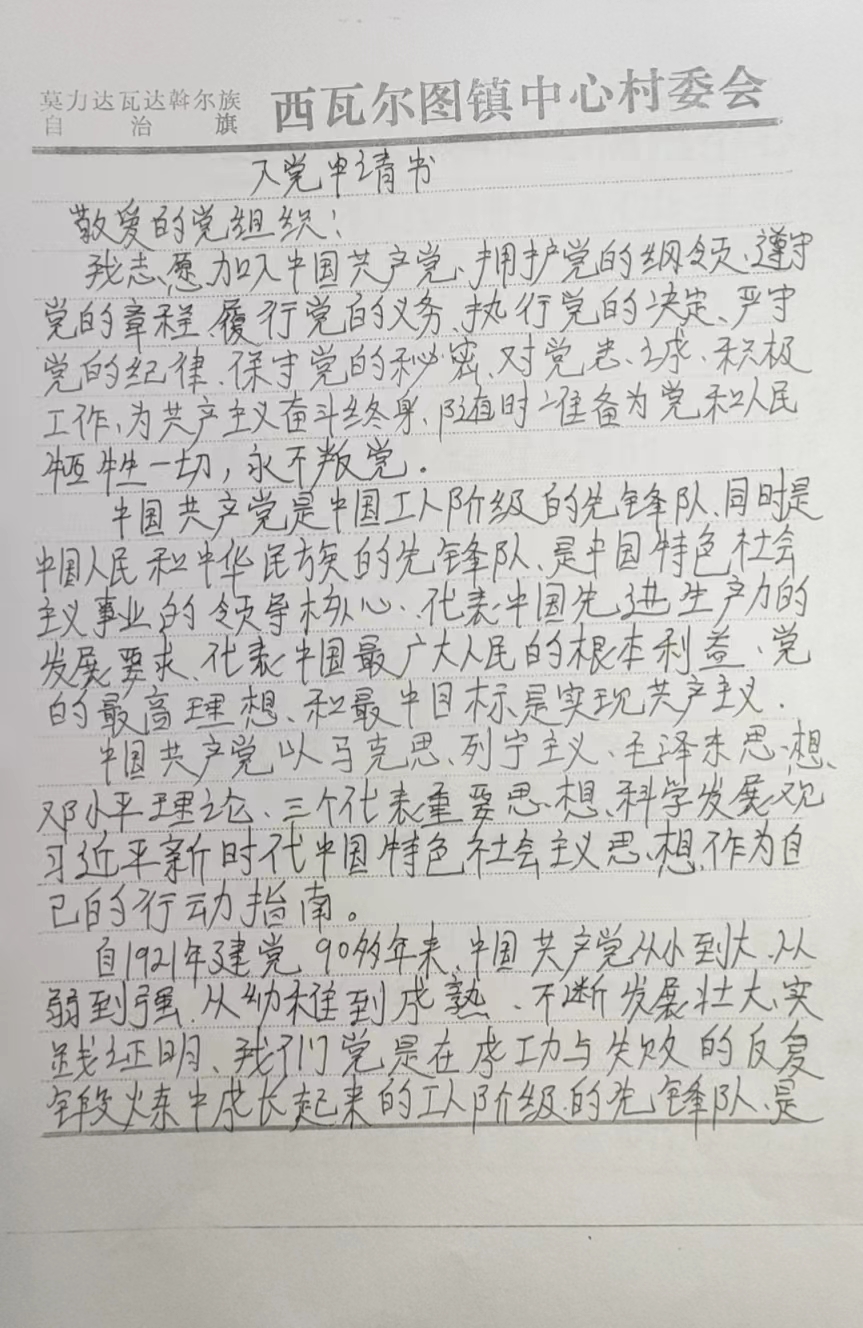 莫力达瓦达斡尔族
自治旗
西瓦尔图镇中心村委会
入党申请书
敬爱的党组织：
我志愿加入中国共产党、拥护党的纲领、遵守
党的章程、履行党的义务、执行党的决定、严守
党的纪律、保守党的秘密、对党忠诚、积极
工作、为共产主义奋斗终身、随时准备为党和人民
牺牲一切，永不叛党。
中国共产党是中国工人阶级的先锋队、同时是
中国人民和中华民族的先锋队、是中国特色社会
主义事业的领导核心、代表中国先进生产力的
发展要求、代表中国最广大人民的根本利益、党
的最高理想、和最中目标是实现共产主义.
中国共产党以马克思、列宁主义、毛泽东思想、
邓小平理论、三个代表重要思想、科学发展观
习近平新时代中国特色社会主义思想、作为自
己的行动指南。
自1921年建党90多年来、中国共产党从小到大、从
弱到强、从幼稚到成熟、不断发展壮大、实
践证明、我们党是在成功与失败的反复
锻炼中成长起来的工人阶级的先锋队、是